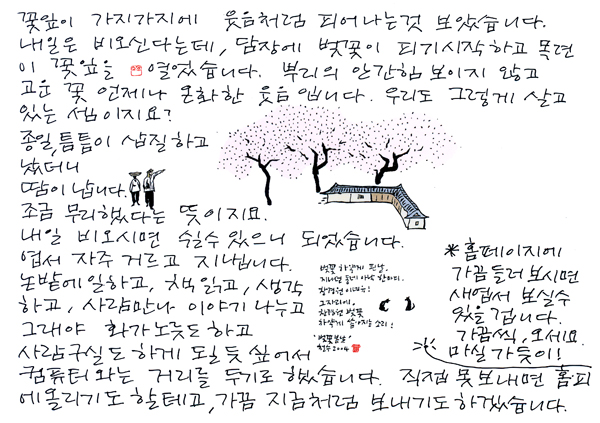 꽃잎이 가지가지에 웃음처럼 피어나는것 보았습니다.
내일은 비오신다는데, 담장에 벚꽃이 피기시작하고 목련
이 꽃잎을 열었습니다. 뿌리의 안간힘 보이지 않고
고운 꽃 언제나 온화한 웃음입니다. 우리도 그렇게 살고
있는 셈이지요?
종일, 틈틈이 삽질하고
났더니
땀이 납니다.
조금 무리했다는 뜻이지요.
내일 비오시면 쉬실수있으니 되었습니다.
엽서 자주 거르고 지냅니다.
논밭에일하고, 책읽고, 생각
하고, 사람만나 이야기 나누고
그래야 화가노릇도 하고
사람구실도 하게 될듯 싶어서
컴퓨터와는 거리를 두기로 했습니다. 직접 못보내면 홈피
에올리기도 할테고, 가끔 지금처럼 보내기도하겠습니다.
벚꽃 하얗게 핀 날.
지나던 동네 아낙 한마디.
창경원이네유!
그자리에,
창경원 벚꽃
하얗게 쏟아지는 소리!
벚꽃 봄날
철수 2004
*홈페이지에
가끔 들러 보시면
새엽서 보실수
있을겁니다.
가끔씩, 오세요.
마실가듯이!